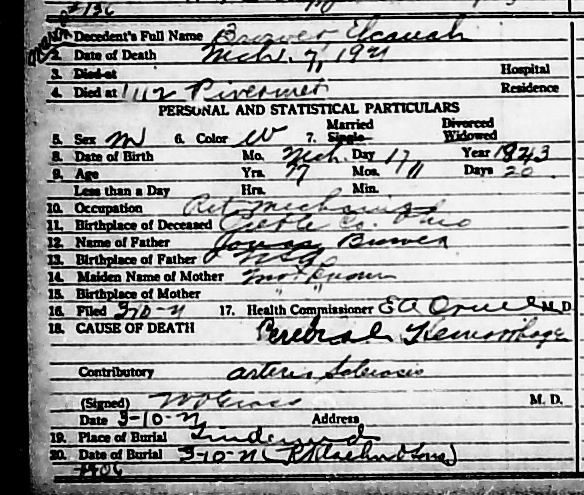 136
1. Decedent's Full Name Brower, Elcanah
2. Date of Death Mch. 7, 1921
3. Died at Hospital
4. Died at 1112 Rivermet Residence
PERSONAL AND STATISTICAL PARTICULARS
Married Divorced
5. Sex M 6. Color W 7. Single Widowed
8. Date of Birth Mo. Mch. Day 17 Year 1843
9. Age Yrs. 77 Mos. 11 Days 20
Less than a Day Hrs. Min.
10. Occupation Ret. Mechanic
11. Birthplace of Deceased Co. Ohio
12. Name of Father Jonas Brower
13. Birthplace of Father
14. Maiden Name of Mother Not Known
15. Birthplace of Mother " "
16. Filed 3-10-21 17. Health Commissioner E A M. D.
18. CAUSE OF DEATH Cerebral Hemorrhage
Contributory Arterio Sclerosis
(Signed) M. D.
Date 3-10-21 Address
19. Place of Burial
20. Date of Burial 3-10-21 & Sons)
1406